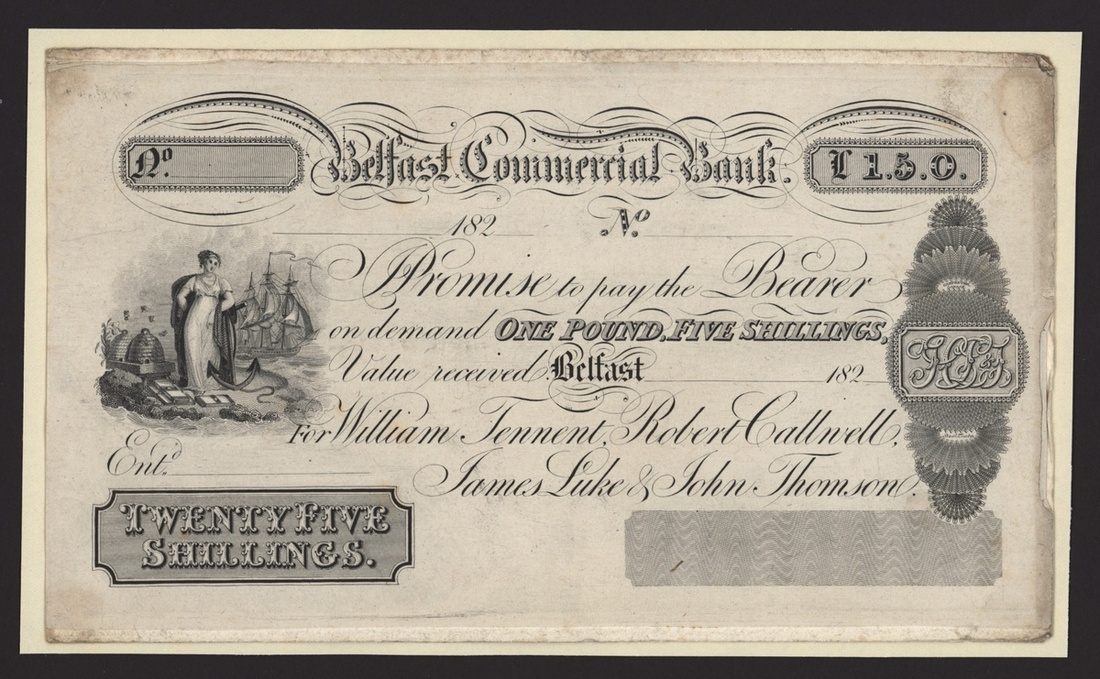 No. Belfast Commercial Bank: £1.5.0.
182 No.
I Promise to pay the Bearer
on demand ONE POUND, FIVE SHILLINGS,
Value received Belfast 182
For William Tennent, Robert Callwell,
Entd.
James Luke & John Thomson.
TWENTY FIVE
SHILLINGS.